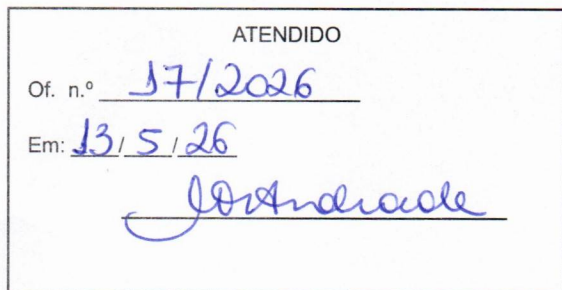 ATENDIDO
Of. n.º 17/2026
Em: 13/5/26
Andrade